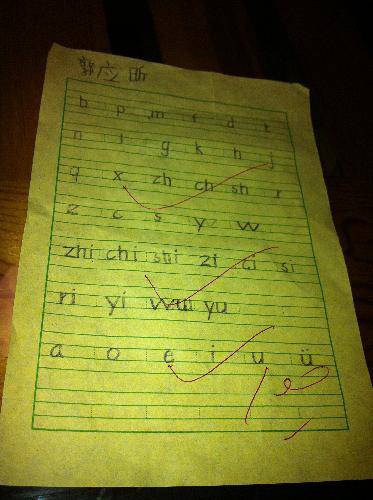 郭应昕
b p m f d t
n l g k h j
q x zh ch sh r
z c s y w
zhi chi shi zi ci si
ri yi wu yu
a o e i u ü
100